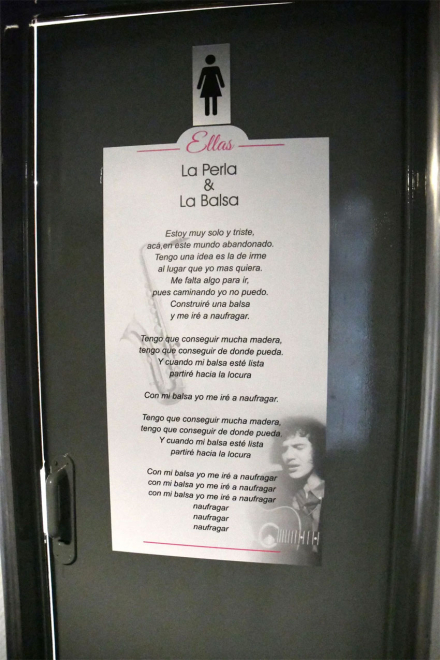 Ellas
La Perla
&
La Balsa
Estoy muy solo y triste,
acá,en este mundo abandonado.
Tengo una idea es la de irme
al lugar que yo mas quiera.
Me falta algo para ir,
pues caminando yo no puedo.
Construiré una balsa
y me iré a naufragar.
Tengo que conseguir mucha madera,
tengo que conseguir de donde pueda.
Y cuando mi balsa esté lista
partiré hacia la locura
Con mi balsa yo me iré a naufragar.
Tengo que conseguir mucha madera,
tengo que conseguir de donde pueda.
Y cuando mi balsa esté lista
partiré hacia la locura
Con mi balsa yo me iré a naufragar
con mi balsa yo me iré a naufragar
con mi balsa yo me iré a naufragar
naufragar
naufragar
naufragar